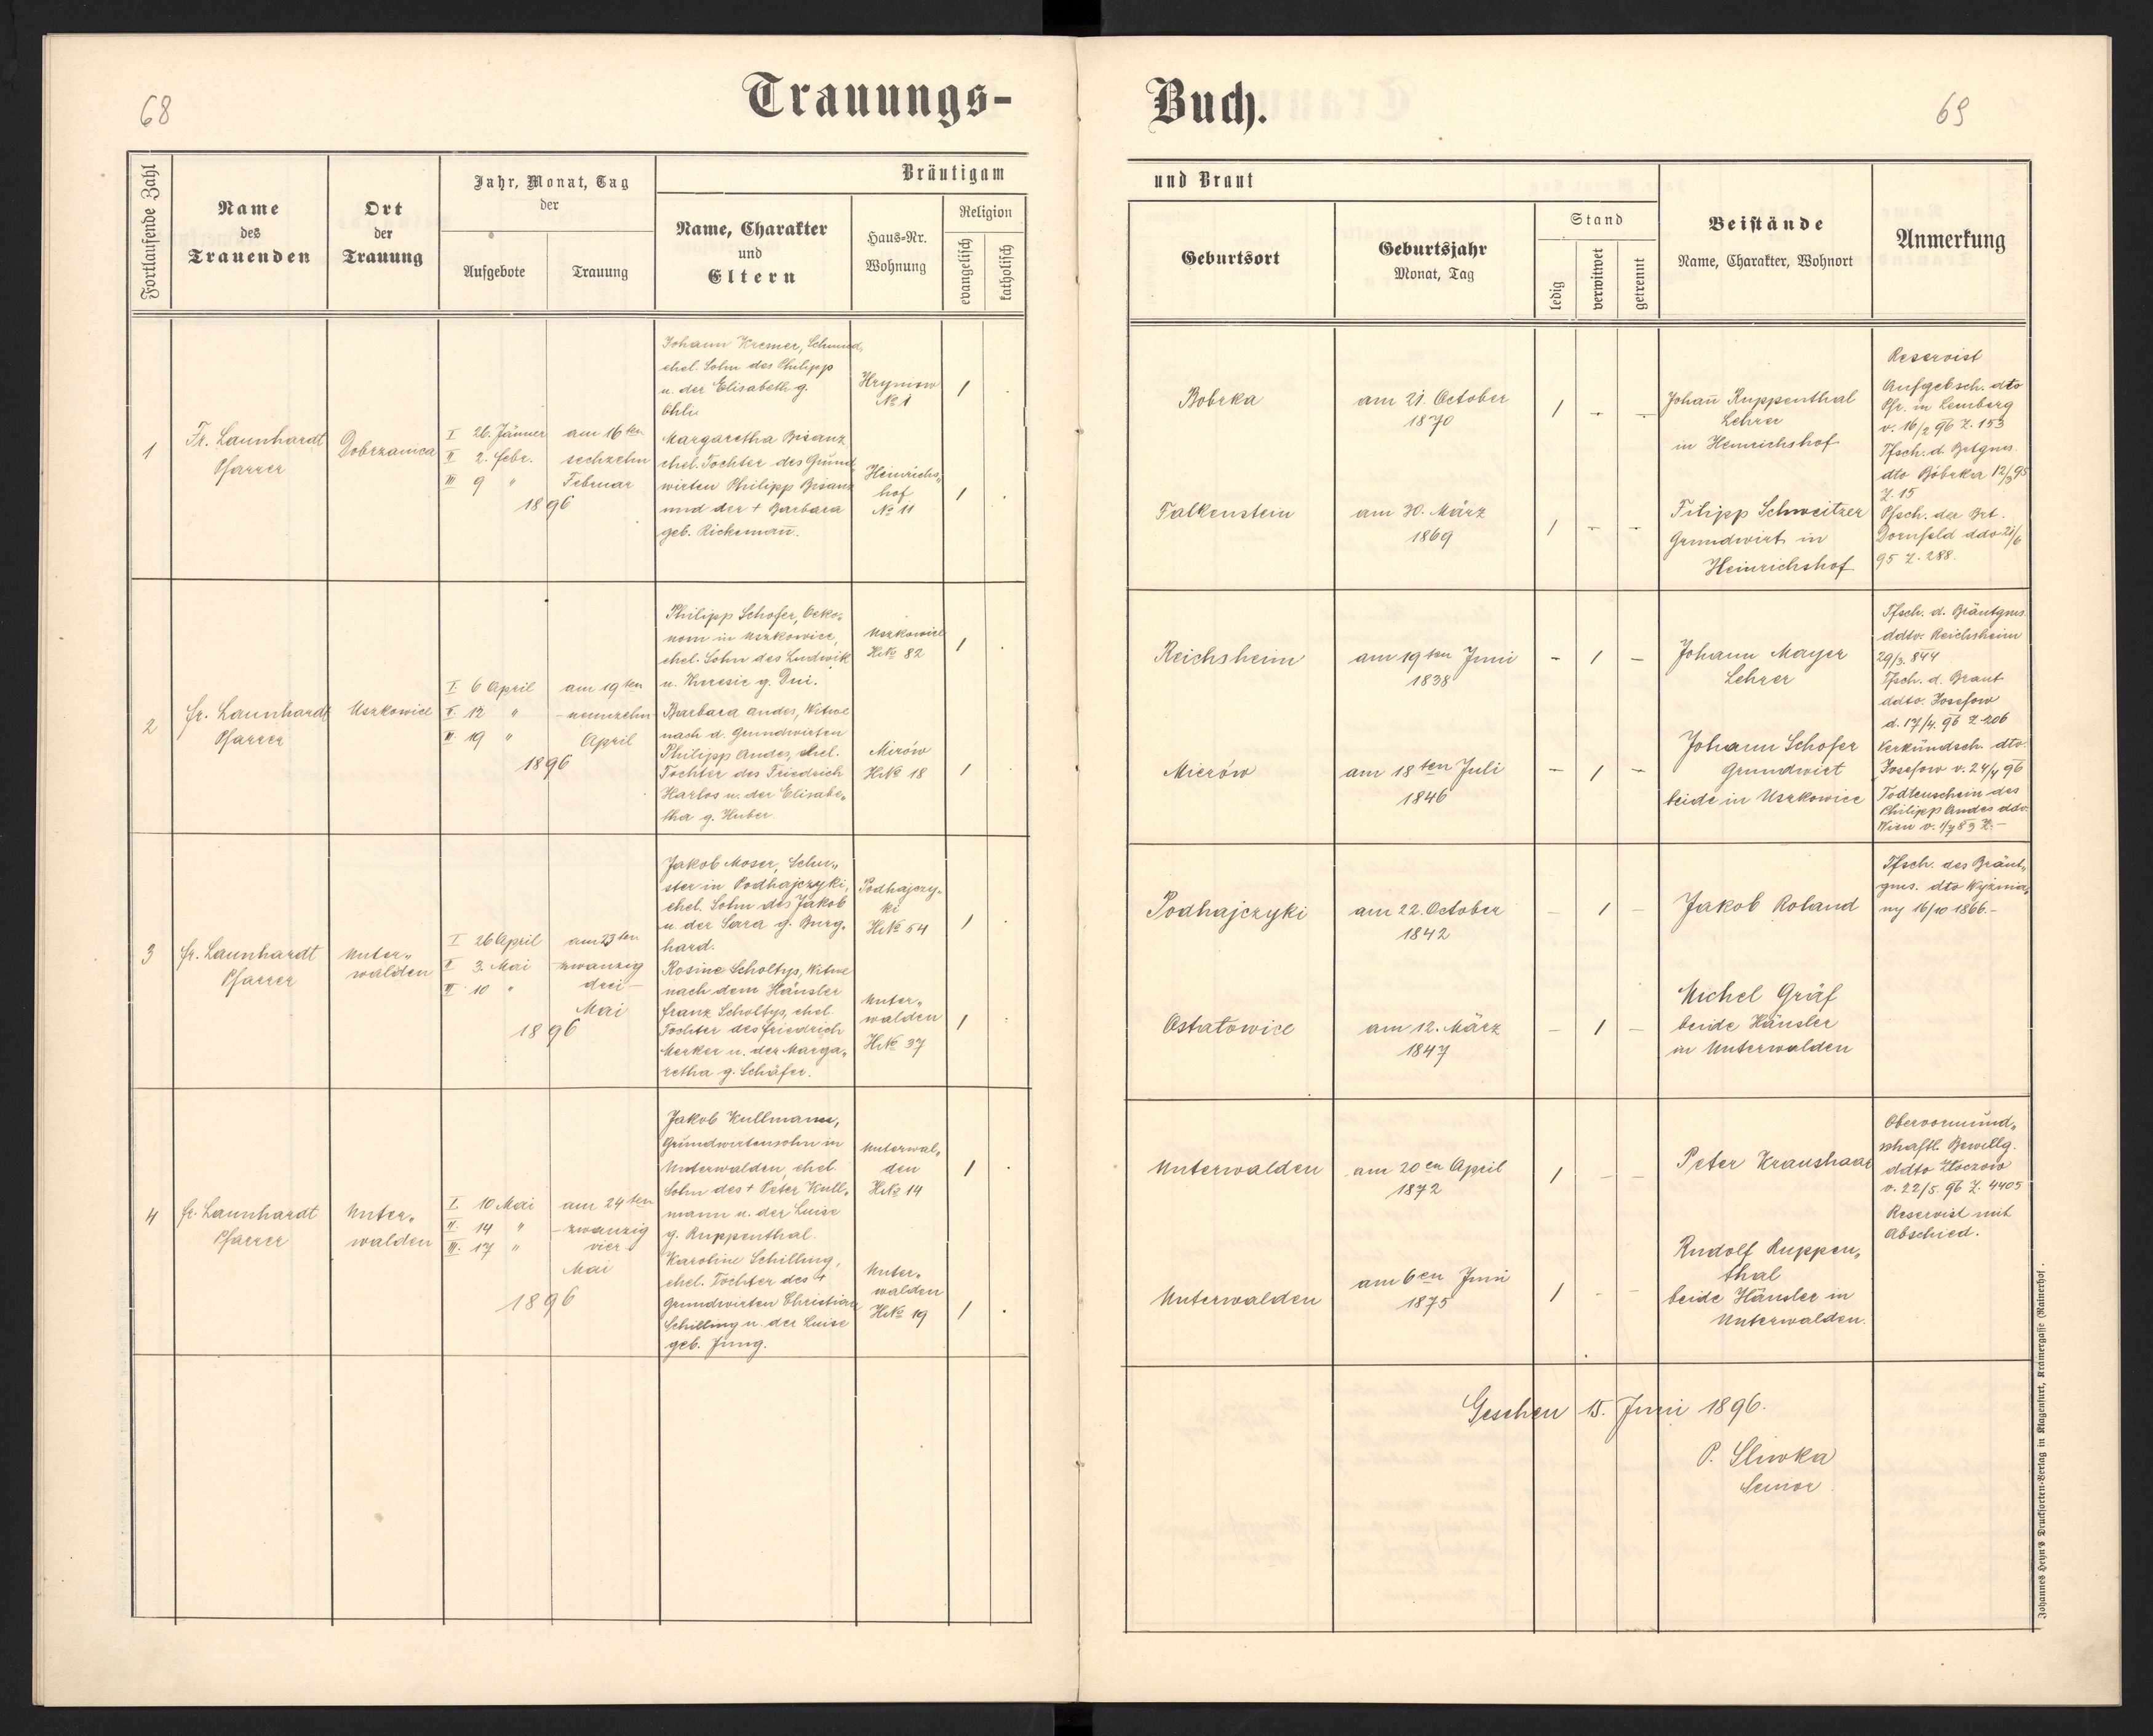 68
Trauungs-
Fortlaufende Zahl
Name
des
Trauenden
Ort
der
Trauung
Jahr, Monat, Tag
der
Aufgebote
Trauung
Bräutigam
Name, Charakter
und
Eltern
Haus-Nr.
Wohnung
Religion
evangelisch
katholisch
1
Fr. Launhardt
Pfarrer
Dobrzanica
I 26. Jänner
II 2. Febr.
III 9 "
am 16ten
sechzehn
Februar
1896
Johann Kremer, Schmied,
ehel. Sohn des Philipp
u. der Elisabeth g.
Margaretha Bisanz
ehel. Tochter des Grund-
wirten Philipp Bisanz
und der + Barbara
geb. Rickemañ.
Hryniow
No 1
Heinrichs-
hof
No 11
1
1
2
Fr. Launhardt
Pfarrer
Uszkowice
I. 6 April
II. 12 "
III 19 "
am 19ten
- neunzehn
April
1896
Philipp Schofer, Oeko-
nom in Uszkowice,
ehel. Sohn des Ludwik
u. Theresie g. Dui.
Barbara Andes, Witwe
nach d. Grundwirten
Philipp Andes, ehel.
Tochter des Friedrich
Harlos u. der Elisabe-
tha g. Huber.
Uszkowice
HNo 82
Mirów
HNo 18
1
1
3
Fr. Launhardt
Pfarrer
Unter-
walden
I 26 April
II 3. Mai
III 10 "
am 23ten
- zwanzig
drei -
Mai
1896
Jakob Moser, Schu-
ster in Podhajczyki,
ehel. Sohn des Jakob
u. der Sara g. Burg-
hard.
Rosine Scholtys, Witwe
nach dem Häusler
Franz Scholtys, ehel.
Tochter des Friedrich
Merker u. der Marga-
retha g. Schäfer.
Podhajczy-
ki
HNo 54
Unter-
walden
HNo 37
1
1
4
Fr. Launhardt
Pfarrer
Unter-
walden
I. 10 Mai
II. 14 "
III. 17 "
am 24ten
- zwanzig
vier -
Mai
1896
Jakob Kullmann,
Grundwirtensohn in
Unterwalden, ehel.
Sohn des + Peter Kull-
mann u. der Luise
g. Ruppenthal.
Karoline Schilling,
ehel. Tochter des +
Grundwirten Christian
Schilling u. der Luise
geb. Jung.
Unterwal-
den
HNo 14
Unter-
walden
HNo 19
1
1
Buch.
69
und Braut
Geburtsort
Geburtsjahr
Monat, Tag
Stand
ledig
verwitwet
getrennt
Beistände
Name, Charakter, Wohnort
Anmerkung
Bobrka
am 21. October
1870
1 - -
Falkenstein
am 30. März
1869
1 - -
Johañ Ruppenthal
Lehrer
in Heinrichshof
Filipp Schweitzer
Grundwirt in
Heinrichshof
Reservist
Aufgebsch. dto
Pfr. in Lemberg
v. 16/2 96 Z. 153
Tfsch. d. Brtgms.
dto Bóbrka 12/3 95
Z. 15
Tfsch. der Brt.
Dornfeld ddo 21/6
95 Z. 288.
Reichsheim
am 19ten Juni
1838
- 1 -
Mierów
am 18ten Juli
1846
- 1 -
Johann Mayer
Lehrer
Johann Schofer
Grundwirt
beide in Uszkowice
Tfsch. d. Bräutgms.
ddto. Reichsheim
29/3. 844
Tfsch. d. Braut
ddto. Josefow
d. 17/4. 96 Z. 206
Verkündsch. dto.
Josefow v. 24/4 96
Todtenschein des
Philipp Andes ddo.
Wien v. 1/7 89 Z. -
Podhajczyki
am 22. October
1842
- 1 -
Ostatowice
am 12. März
1847
- 1 -
Jakob Roland
Michel Gräf
beide Häusler
in Unterwalden
Tfsch. des Bräut-
gms. dto Wyżnia-
ny 16/10 1866.-
Unterwalden
am 20en April
1872
1 - -
Unterwalden
am 6en Juni
1875
1 - -
Peter Kraushaar
Rudolf Ruppen-
thal
beide Häusler in
Unterwalden.
Obervormund-
schaftl. Bewillg.
ddto Złoczow
v. 22/5. 96 Z. 4405
Reservist mit
Abschied.
Geschen 15. Juni 1896.
P. Sliwka
Senior
Johannes Heyn's Drucksorten-Verlag in Klagenfurt, Kramergasse (Rainerhof).